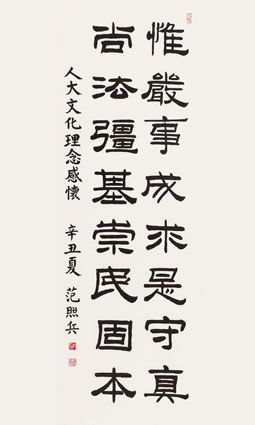 惟嚴事成求是守真
尚法彊基崇民固本
人大文化理念感懷 辛丑夏 范照兵